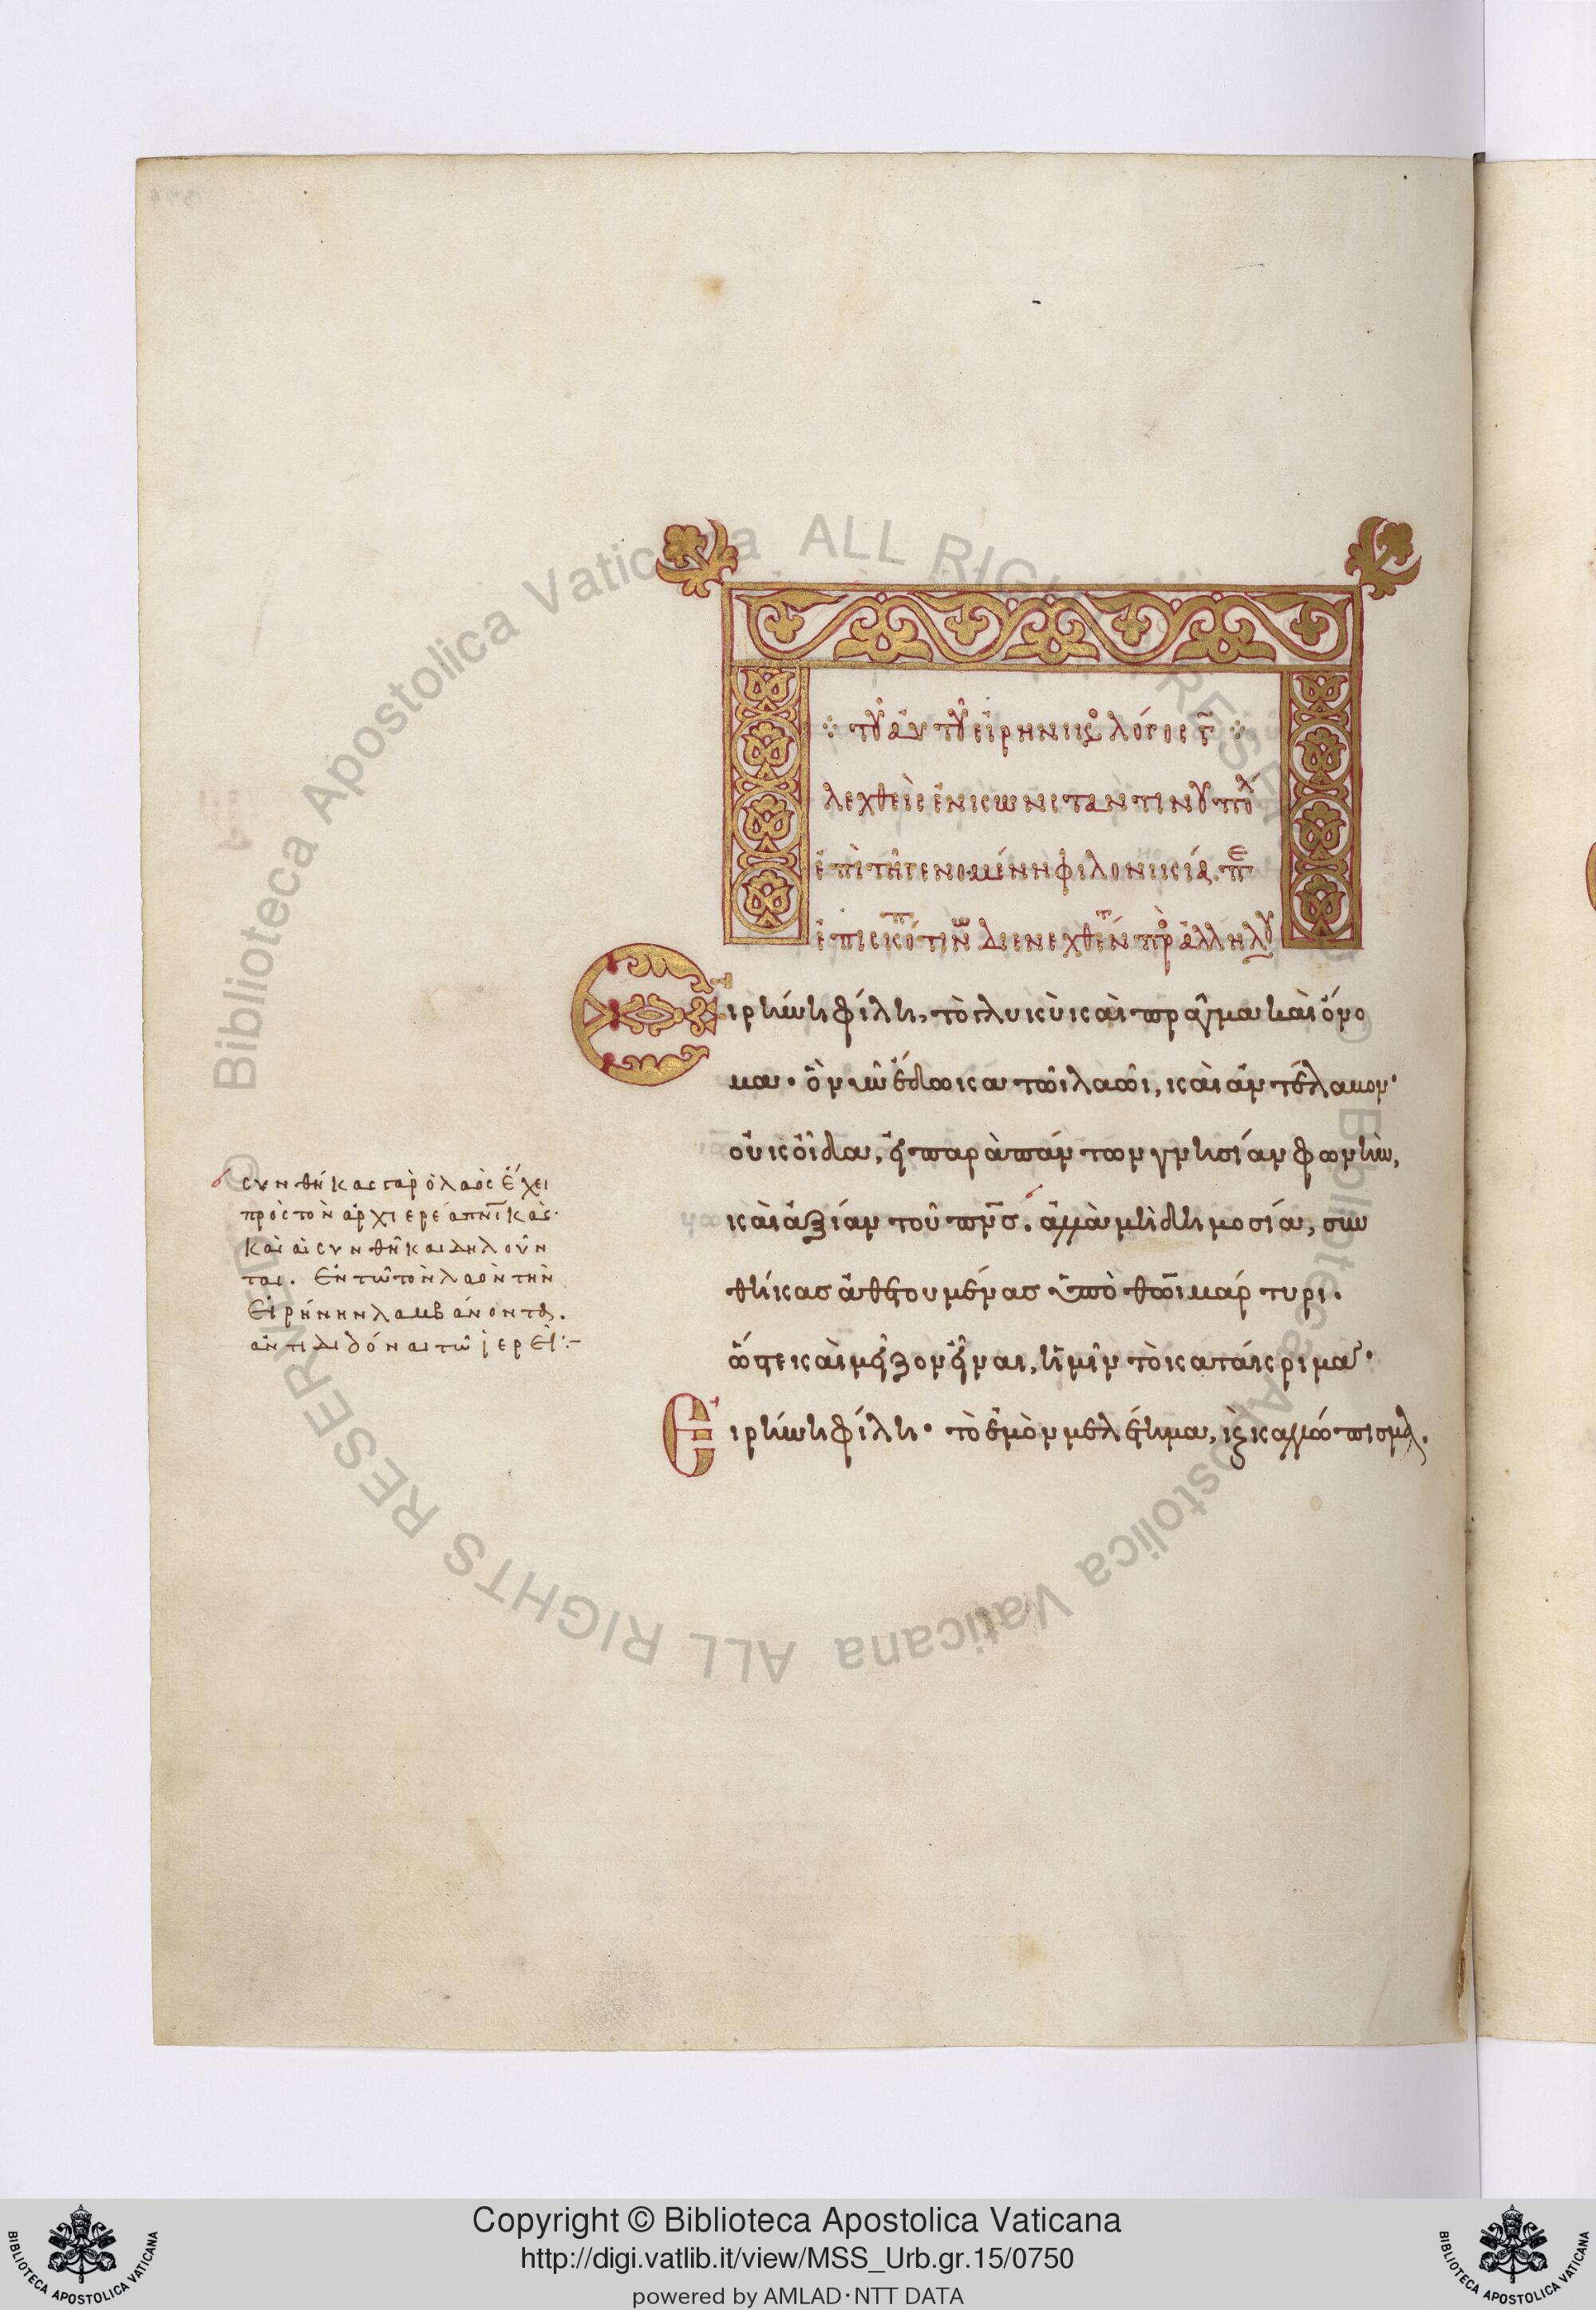 τοῦ αὐτοῦ εἰρηνικὸς λόγος γ̄
λεχθεὶς ἐν κωνσταντινουπόλ
ἐπὶ τῇ γενομένῃ φιλονικίᾳ
ἐπισκόπων διενεχθέντων πρὸς ἀλλήλους
Εἰρήνη φίλη, τὸ γλυκὺ καὶ πρᾶγμα καὶ ὄνο
μα· ὃ νῦν ἔδωκα τῶι λαῶι, καὶ ἀντέλαβον·
οὐκ οἶδα, εἰ παρὰ πάντων γνησίαν φωνὴν,
καὶ ἀξίαν τοῦ πνς̄. ἀλλὰ μὴ δημοσία, συν
θήκας ἀθετουμένας ὑπὸ θῶι μάρτυρι.
ὥστε καὶ μεῖζον εἶναι, ἡμῖν τὸ κατάκριμα·
Εἰρήνη φίλη· τὸ ἐμὸν μελέτημα, κ καλλώπισμα.
συνθήκας γὰρ ὁ λαὸς ἔχει
πρὸς τὸν ἀρχιερέα πνικάς·
καὶ αἱ συνθῆκαι δηλοῦν
ται. ἐν τῶ τὸν λαὸν τὴν
εἰρήνην λαμβάνοντα.
ἀντιδιδόναι τῶ ἱερεῖ:-
Biblioteca Apostolica Vaticana ALL RIGHTS RESERVED ©
Biblioteca Apostolica Vaticana ALL RIGHTS RESERVED ©
Copyright © Biblioteca Apostolica Vaticana
http://digi.vatlib.it/view/MSS_Urb.gr.15/0750
powered by AMLAD·NTT DATA
BIBLIOTECA APOSTOLICA VATICANA
BIBLIOTECA APOSTOLICA VATICANA